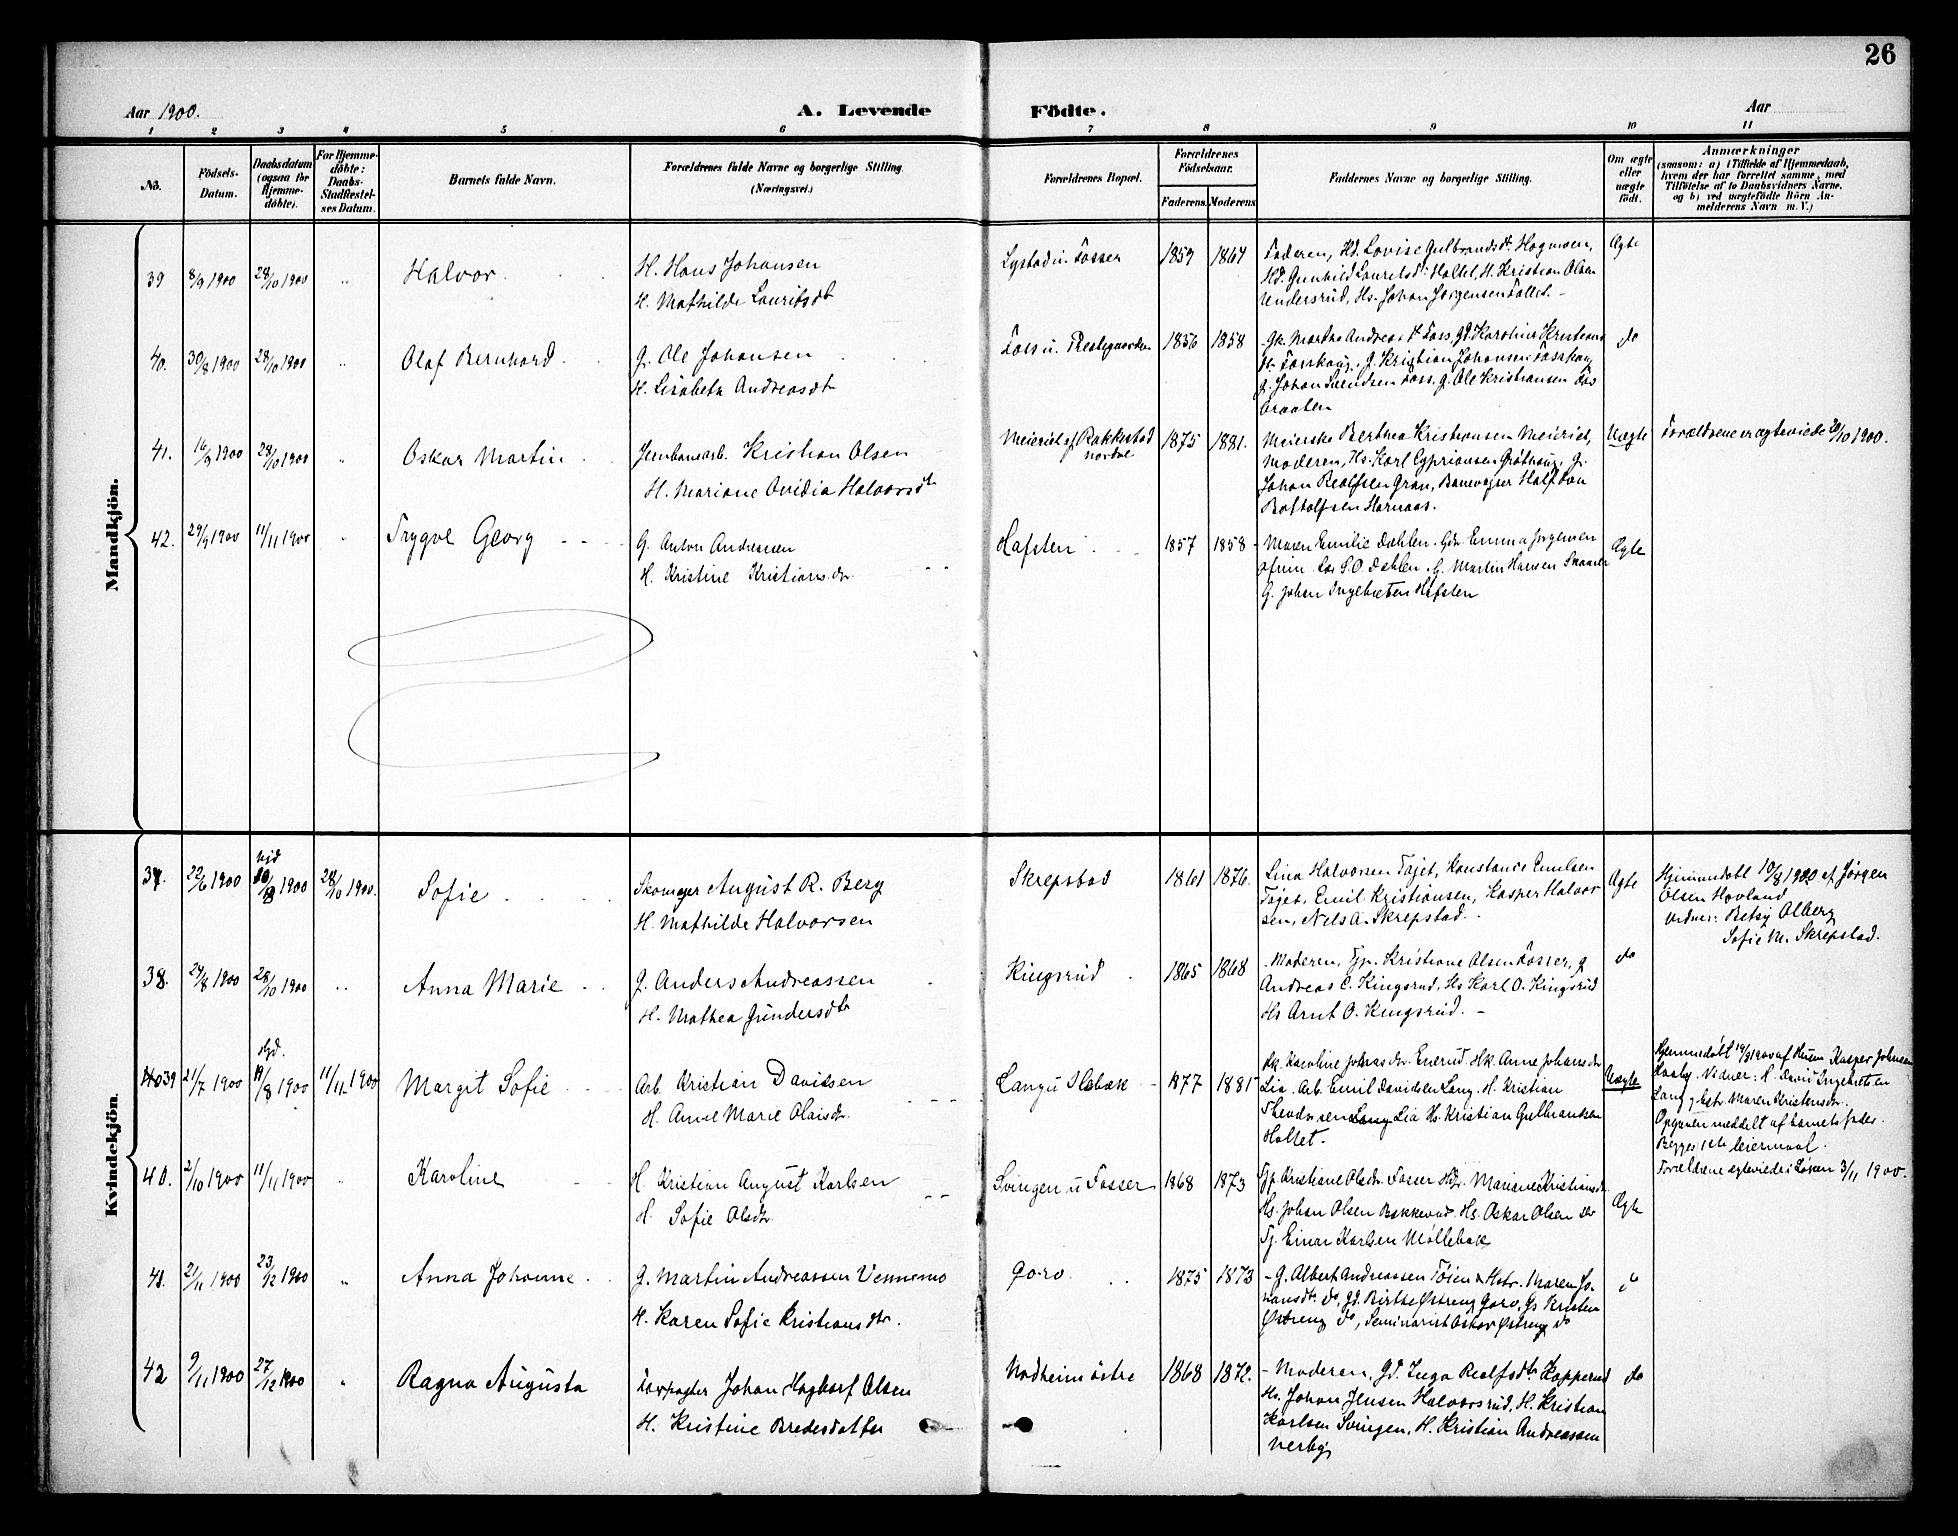 26
Aar 1900.
A. Levende Födte.
Aar
1 2 3 4 5 6 7 8 9 10 11
No.
Födsels-Datum.
Daabsdatum (ogsaa for Hjemme-döbte).
For Hjemme-döbte: Daabs-Stadfæstelses Datum.
Barnets fulde Navn.
Forældrenes fulde Navne og borgerlige Stilling (Næringsvei.)
Forældrenes Bopæl.
Forældrenes Födselsaar.
Faderens. Moderens
Faddernes Navne og borgerlige Stilling.
Om ægte eller uægte födt.
Anmærkninger
(saasom: a) i Tilfælde af Hjemmedaab, hvem der har forrettet samme, med Tilföielse af to Daabsvidners Navne, og b) ved uægtefödte Börn Anmelderens Navn m. V.)
Mandkjön.
39 8/9 1900 28/10 1900 " Halvor
H. Hans Johansen
H. Mathilde Lauritsdt
Lystad u. Fosser 1859 1864
Faderen, Hd. Lovise Gulbrandsdt. Hagnesen,
Hd. Gunhild Lauritsdt Holtet, H. Kristian Olsen
Undersrud, Hs. Johan Jørgensen
Ægte
40. 30/8 1900 28/10 1900 " Olaf Bernhard
G. Ole Johansen
H. Lisabeth Andreasdt
Foss u. Prestegaarden 1856 1858
Gk. Marthe Andreasdt Foss, Gd. Karoline Kristians
dt. Fosshaug, G. Kristian Johansen Fosshaug
G. Johan Svendsen Foss, G. Ole Kristiansen Fos
Braaten
do
41. 16/9 1900 28/10 1900 " Oskar Martin
Jernbanearb. Kristian Olsen
H. Mariane Ovidia Halvorsdt
Meieriet pr Rakkestad
nordre
1875 1881.
Meierske Berthea Kristiansen Meieriet,
Moderen, Hs. Karl Cypriansen Grøthaug, G.
Johan Reolfsen Gran, Banevogter Halfdan
Bottolfsen Hornaas.
Uægte
Forældrene er ægteviede 20/10 1900.
42. 29/9 1900 11/11 1900 " Trygve Georg
G. Anton Andresen
H. Kristine Kristiansdr
Hafsten 1857 1858
Maren Emilie Dahlen. Gdr Emma Jorgensen
S.O. Dahlen. G. Martin Hansen
G. Johan Ingebretsen Hafsten
Ægte
Kvindekjön.
37. 22/6 1900 hjd 10/8 1900 28/10 1900. Sofie
Skomager August R. Berg
H. Mathilde Halvorsen
Skrepstad 1861 1876.
Lina Halvorsen Tøjet, Konstance Emilsen
Tøjet, Emil Kristiansen, Kasper Halvor
sen, Nels A. Skrepstad.
Ægte
Hjemmedøbt 10/8 1900 af Jørgen
Olsen Hovland
Vidner: Betsy Alberg
Sofie M. Skrepstad.
38. 24/8 1900 28/10 1900 " Anna Marie
G. Anders Andreassen
H. Mathea Gundersdt
Kingsrud 1865 1868
Moderen, Tjp. Kristiane Olsen Fosser, G
Andreas C. Kingsrud, Hs Karl O. Kingsrud
Hs Arnt O. Kingsrud.
do
39 21/7 1900 Hjd. 19/8 1900 11/11 1900 Margit Sofie
Arb. Kristian Davidsen
H. Anne Marie Olausdr
Lang u Slebæk 1877 1881
Hk. Karoline Johansdr. Enerud. Hk. Anne Johansdr
Lia. Arb. Emil Davidsen Lang. H. Kristian
Theodorsen Lia Hs. Kristian Gulbransen
Holtet.
Uægte
Hjemmedøbt 19/8 1900 af Kasper Johnsen
Vidner: H. David Ingebretsen
Lang, Maren Kristensdr.
Opgaven meddelt af barnets fader.
Begges 1ste leiermaal.
Forældrene egteviede i 3/11 1900.
40. 2/10 1900 11/11 1900 " Karoline
H. Kristian August Karlsen
H. Sofie Olsdr
Svingen u Fosser 1868 1873
Tjp. Kristiane Olsdr. Fosser Mariane Kristiansdr
Hs. Johan Olsen Bakkerud. Hs. Oskar Olsen do
Tj. Einar Karlsen Møllebæk
Ægte
41. 21/11 1900 23/12 1900 " Anna Johanne
G. Martin Andreassen Vennemo
H. Karen Sofie Kristiansdtr.
Goro. 1875 1873
G. Albert Andreassen Tøien & Hstr. Maren Jo-
hansdt. do, Gd. Birthe Østreng Goro, Gs Kristen
Østreng do, Seminarist Oskar Østreng do
42 9/11 1900 27/12 1900 " Ragna Augusta
Forpagter Johan Hagbarf Olsen
H. Kristine Bredesdatter
Nodheim østre 1868 1872.
Moderen, Gd. Inga Reolfsdt Kopperud
Hs. Johan Jensen Halvorsrud, H. Kristian
Karlsen Svingen, H. Kristian Andreassen
Verby
do